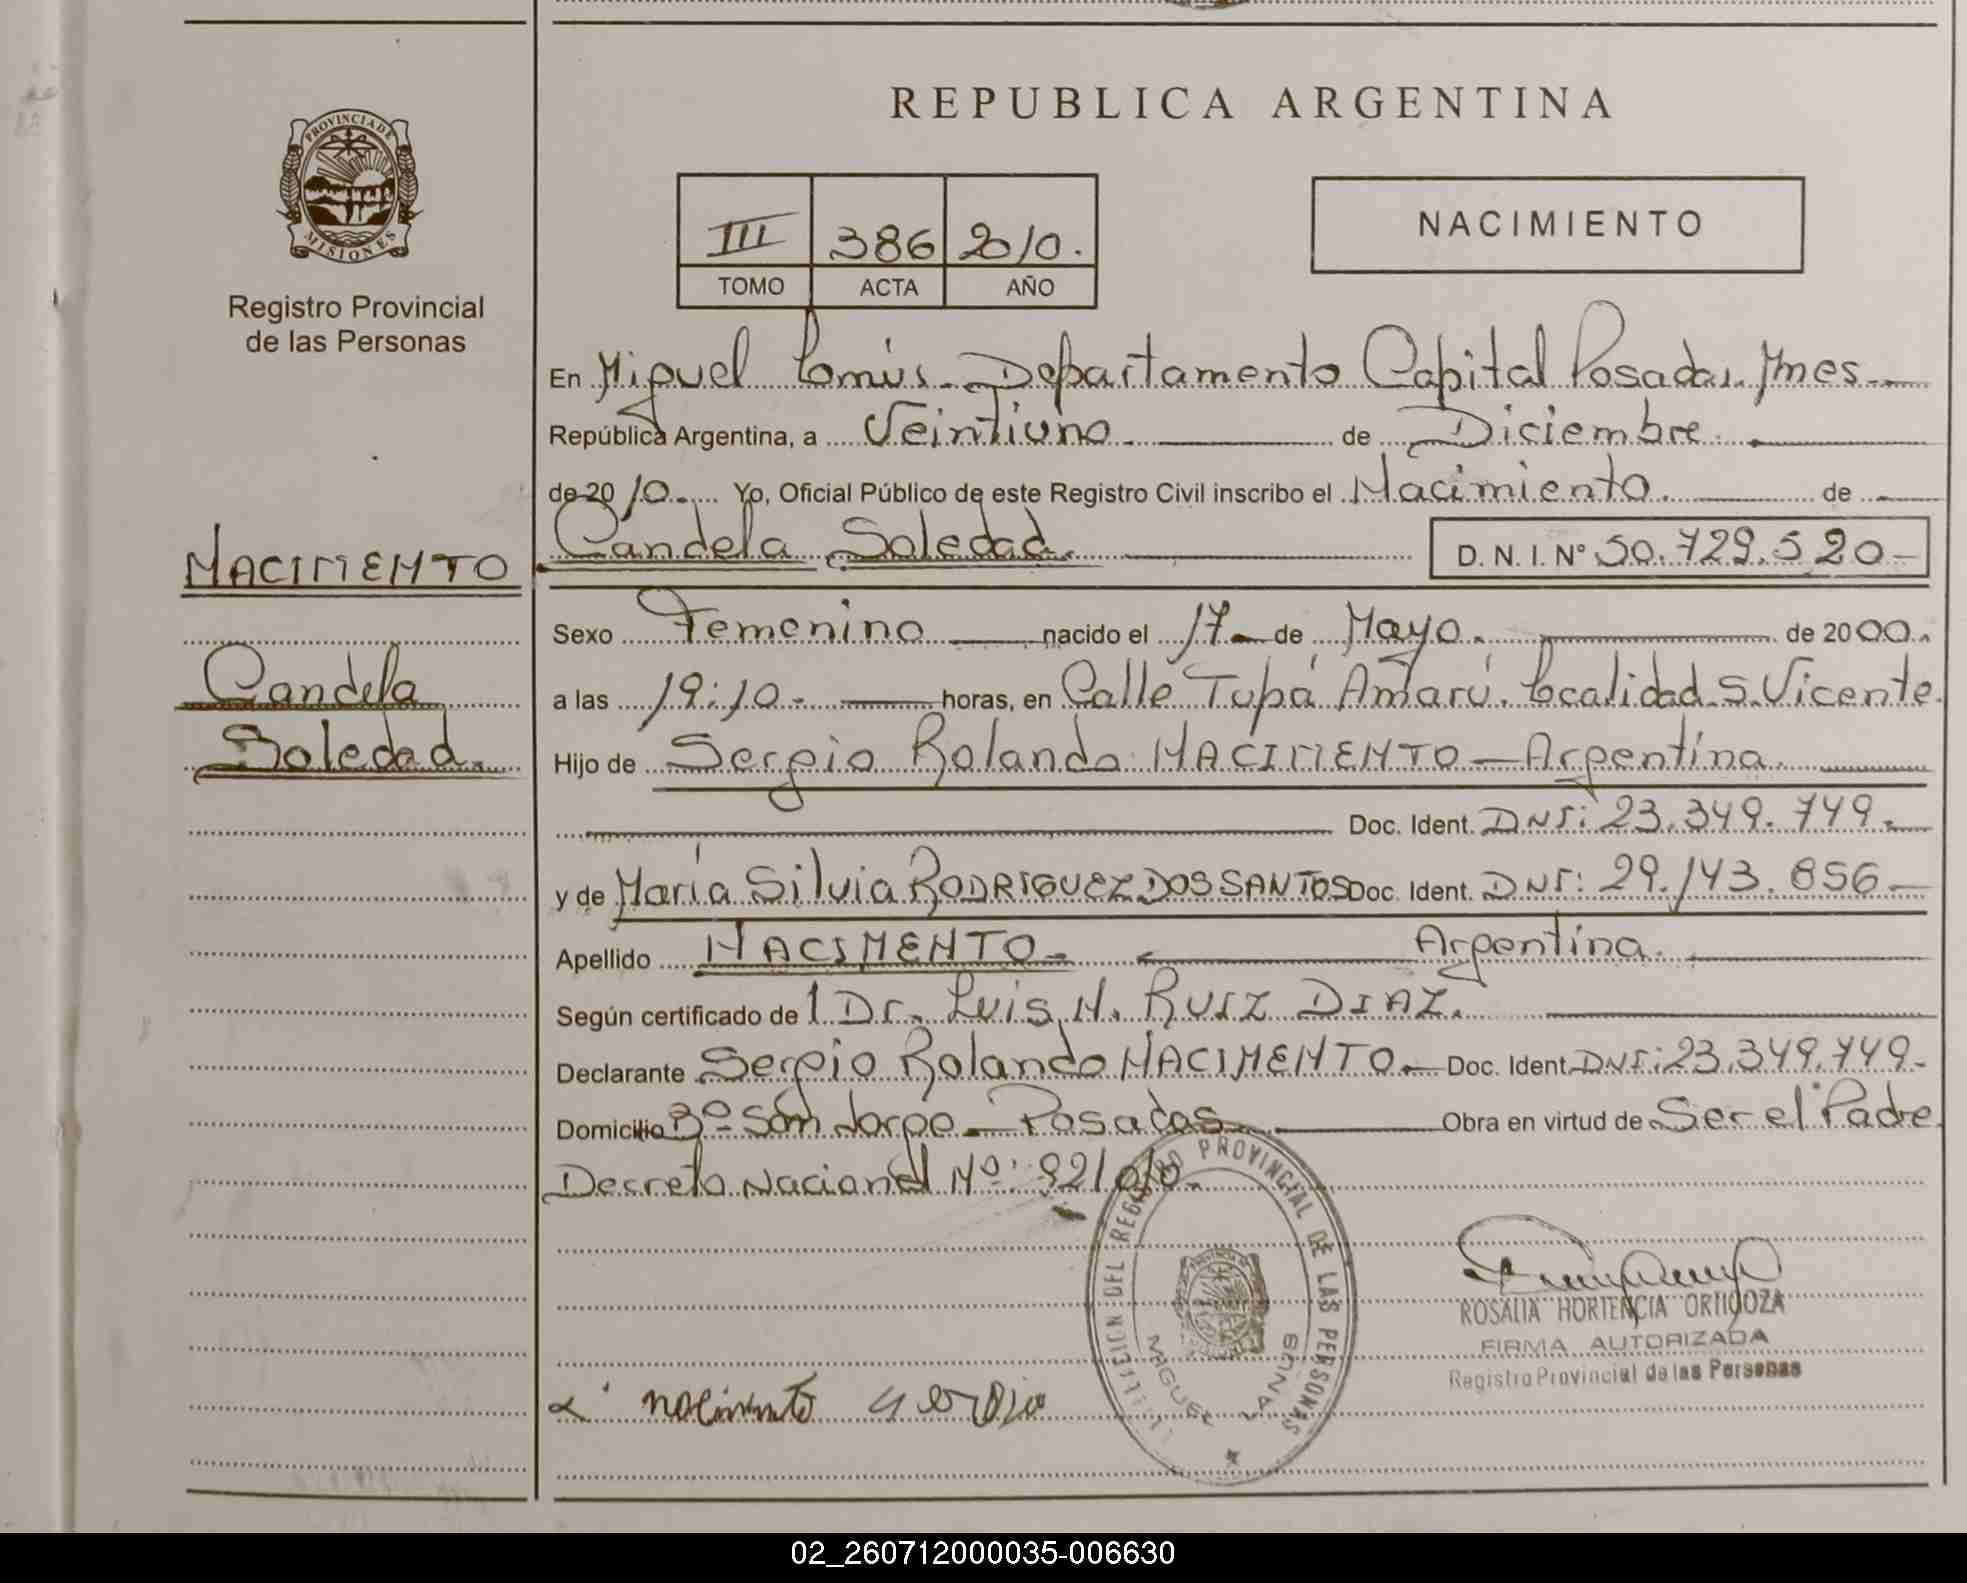 REPUBLICA ARGENTINA
PROVINCIA DE
MISIONES
Registro Provincial
de las Personas
III 386 2010.
TOMO ACTA AÑO
NACIMIENTO
En Miguel Lanús - Departamento Capital Posadas. Mnes -
República Argentina, a Veintiuno. de Diciembre.
de 2010. Yo, Oficial Público de este Registro Civil inscribo el Nacimiento. de
Candela Soledad. D. N. I. Nº 50.729.520-
NACIMIENTO
Candela
Soledad.
Sexo Femenino nacido el 17 - de Mayo. de 2000.
a las 19:10 - horas, en Calle Tupá Amarú. Localidad S. Vicente.
Hijo de Sergio Rolando NACIMIENTO - Argentina.
Doc. Ident. DNI: 23.349.749.-
y de María Silvia RODRIGUEZ DOS SANTOS Doc. Ident. DNI: 29.143.856 -
Apellido NACIMENTO - Argentina.
Según certificado de l Dr. Luis H. RUIZ DIAZ.
Declarante Sergio Rolando NACIMENTO.- Doc. Ident. DNI: 23.349.749-
Domicilio Bº San Jorge - Posadas Obra en virtud de Ser el Padre
Decreto Nacional Nº: 92/010.
DEL REGISTRO PROVINCIAL DE LAS PERSONAS
MIGUEL LANUS
ROSALIA HORTENCIA ORTIGOZA
FIRMA AUTORIZADA
Registro Provincial de las Personas
nacimento sergio
02_260712000035-006630